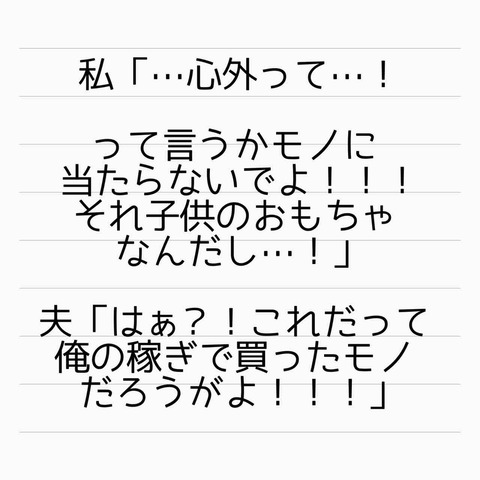 私「…心外って…！
って言うかモノに
当たらないでよ！！！
それ子供のおもちゃ
なんだし…！」
夫「はぁ？！これだって
俺の稼ぎで買ったモノ
だろうがよ！！！」